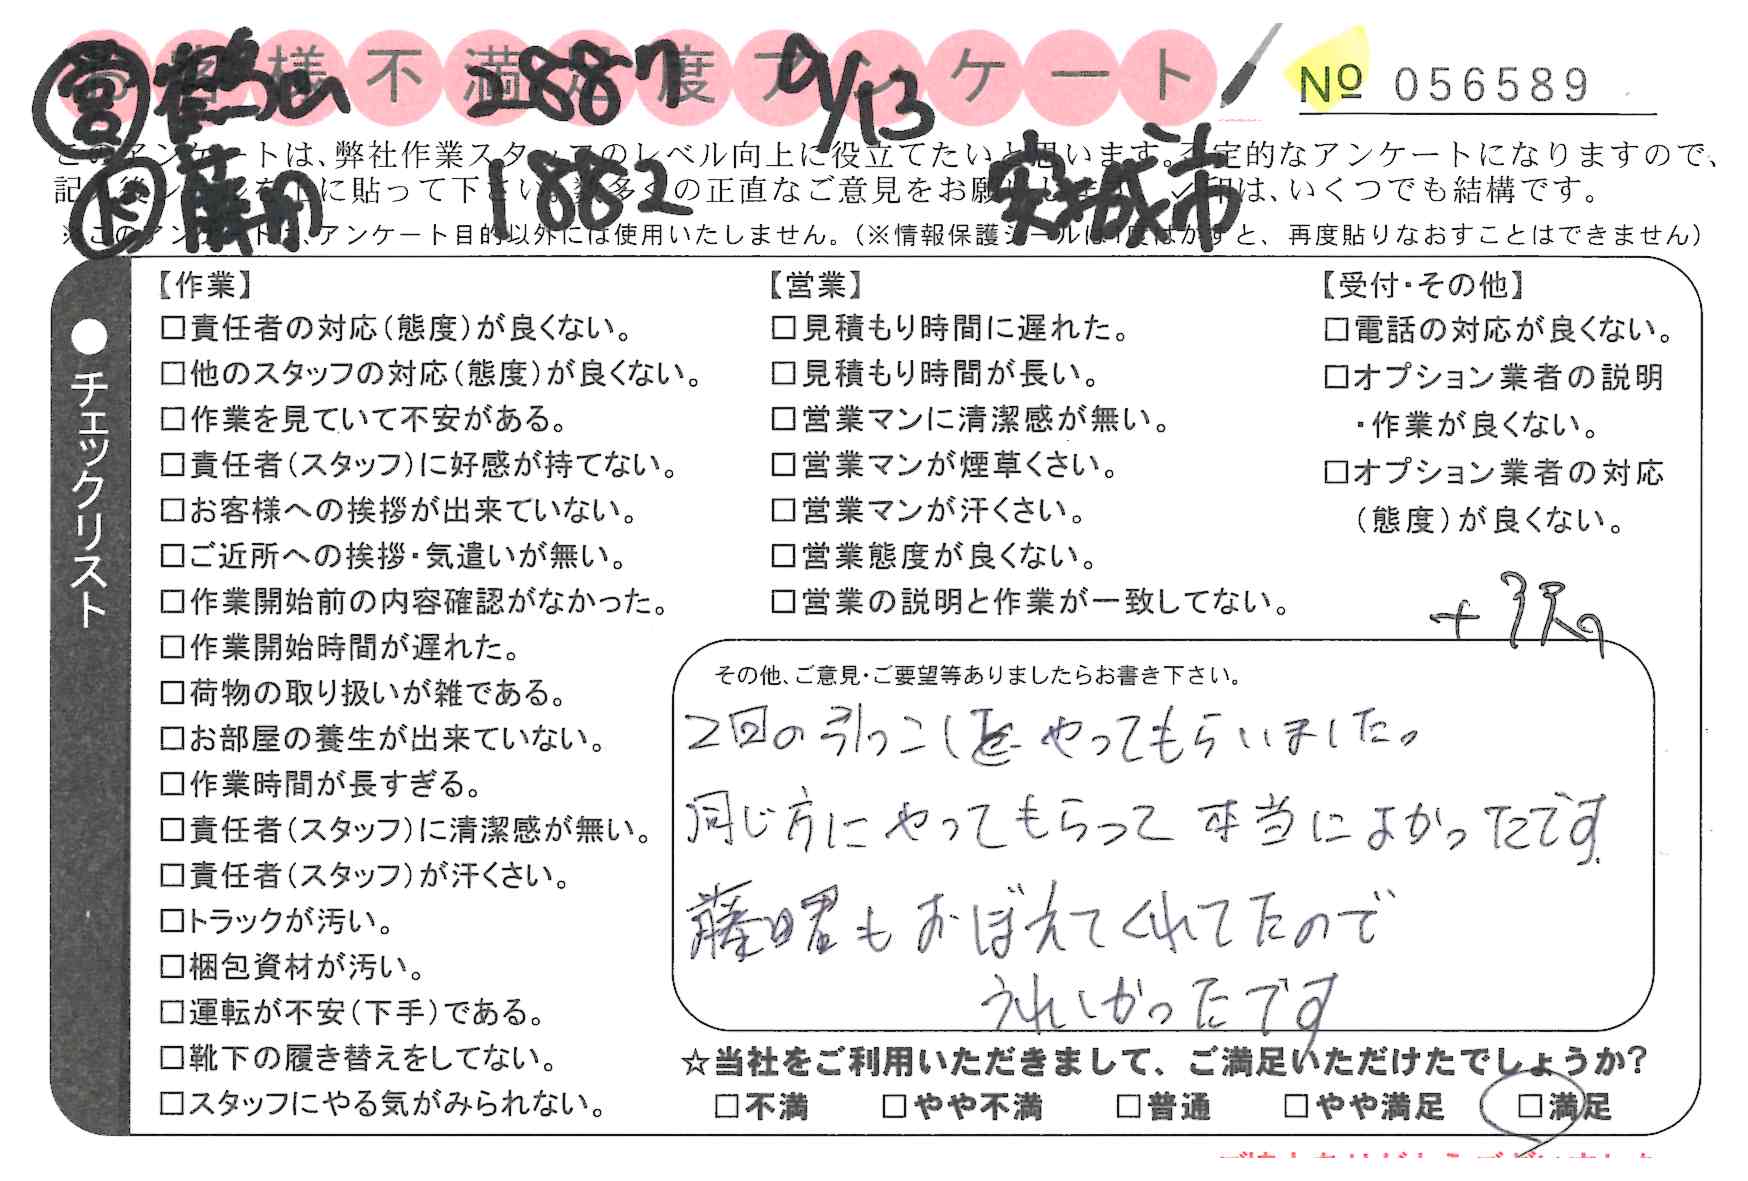 お客様不満足度アンケート
№ 056589
営 鶴山 2887 9/13
このアンケートは、弊社作業スタッフのレベル向上に役立てたいと思います。不定的なアンケートになりますので、
安城市
記入後シールを上に貼って下さい。数多くの正直なご意見をお願いします。✓印は、いくつでも結構です。
藤曲 1882
※このアンケートは、アンケート目的以外には使用いたしません。(※情報保護シールは1度はがすと、再度貼りなおすことはできません)
●チェックリスト
【作業】
□責任者の対応(態度)が良くない。
□他のスタッフの対応(態度)が良くない。
□作業を見ていて不安がある。
□責任者(スタッフ)に好感が持てない。
□お客様への挨拶が出来ていない。
□ご近所への挨拶・気遣いが無い。
□作業開始前の内容確認がなかった。
□作業開始時間が遅れた。
□荷物の取り扱いが雑である。
□お部屋の養生が出来ていない。
□作業時間が長すぎる。
□責任者(スタッフ)に清潔感が無い。
□責任者(スタッフ)が汗くさい。
□トラックが汚い。
□梱包資材が汚い。
□運転が不安(下手)である。
□靴下の履き替えをしてない。
□スタッフにやる気がみられない。
【営業】
□見積もり時間に遅れた。
□見積もり時間が長い。
□営業マンに清潔感が無い。
□営業マンが煙草くさい。
□営業マンが汗くさい。
□営業態度が良くない。
□営業の説明と作業が一致してない。
【受付・その他】
□電話の対応が良くない。
□オプション業者の説明
・作業が良くない。
□オプション業者の対応
(態度)が良くない。
その他、ご意見・ご要望等ありましたらお書き下さい。
2回の引っこしをやってもらいました。
同じ方にやってもらって本当によかったです
もおぼえてくれてたので
うれしかったです
☆当社をご利用いただきまして、ご満足いただけたでしょうか?
□不満 □やや不満 □普通 □やや満足 □満足